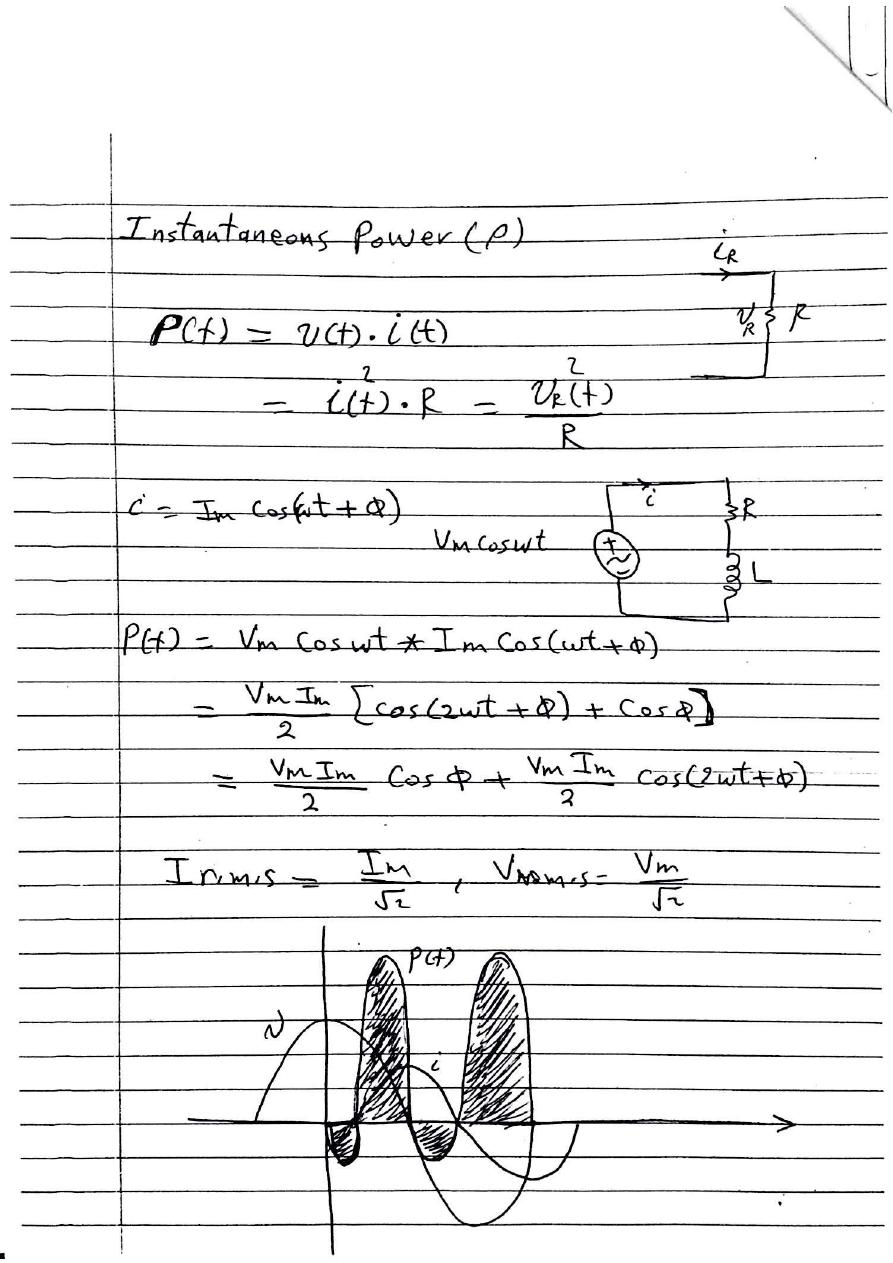 Instantaneous Power (P)
i_R
P(t) = v(t) . i(t)
V_R R
= i²(t) . R = V_R²(t) / R
i = Im Cos(ωt + Φ)
i R
Vm cosωt + ~ -
L
P(t) = Vm Cos ωt * Im Cos(ωt + Φ)
= Vm Im / 2 [cos(2ωt + Φ) + Cos Φ]
= Vm Im / 2 Cos Φ + Vm Im / 2 cos(2ωt + Φ)
Ir.m.s = Im / √2 , Vr.m.s = Vm / √2
P(t)
v
i